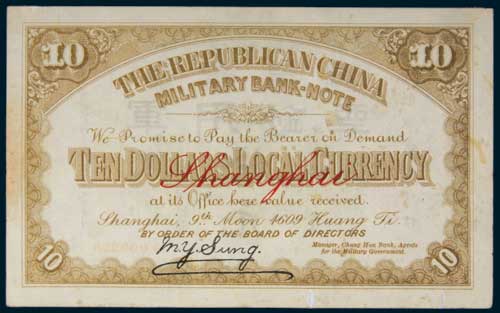 10 10
THE REPUBLICAN CHINA
MILITARY BANK-NOTE
We Promise to Pay the Bearer on Demand
TEN DOLLARS LOCAL CURRENCY
Shanghai
at its Office here value received.
Shanghai, 9th Moon 4609 Huang Ti.
BY ORDER OF THE BOARD OF DIRECTORS
M.Y. Sung.
Manager, Chung Hua Bank, Agents
for the Military Government.
10 10